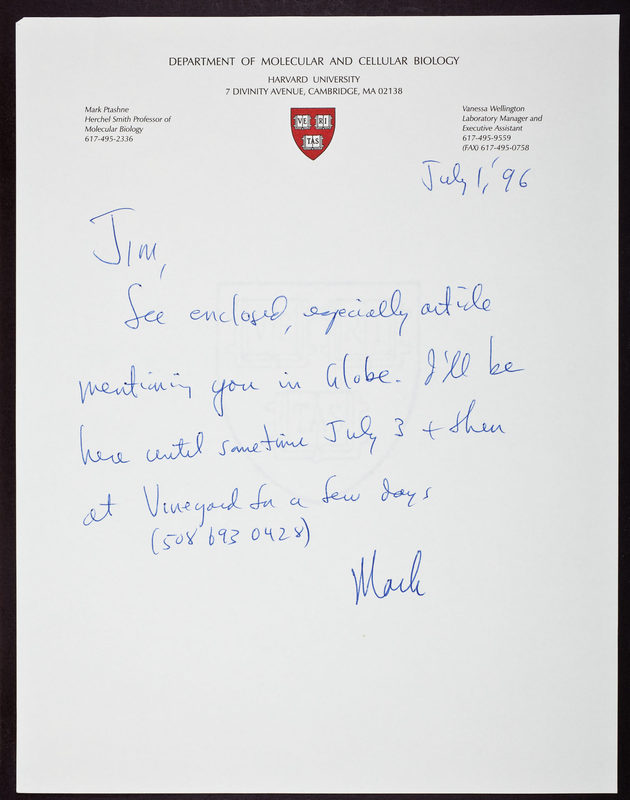 DEPARTMENT OF MOLECULAR AND CELLULAR BIOLOGY
HARVARD UNIVERSITY
7 DIVINITY AVENUE, CAMBRIDGE, MA 02138
Mark Ptashne
Herchel Smith Professor of
Molecular Biology
617-495-2336
VE RI
TAS
Vanessa Wellington
Laboratory Manager and
Executive Assistant
617-495-9559
(FAX) 617-495-0758
July 1, '96
Jim,
See enclosed, especially article
mentioning you in Globe. I'll be
here until sometime July 3 + then
at Vineyard for a few days
(508 693 0428)
Mark